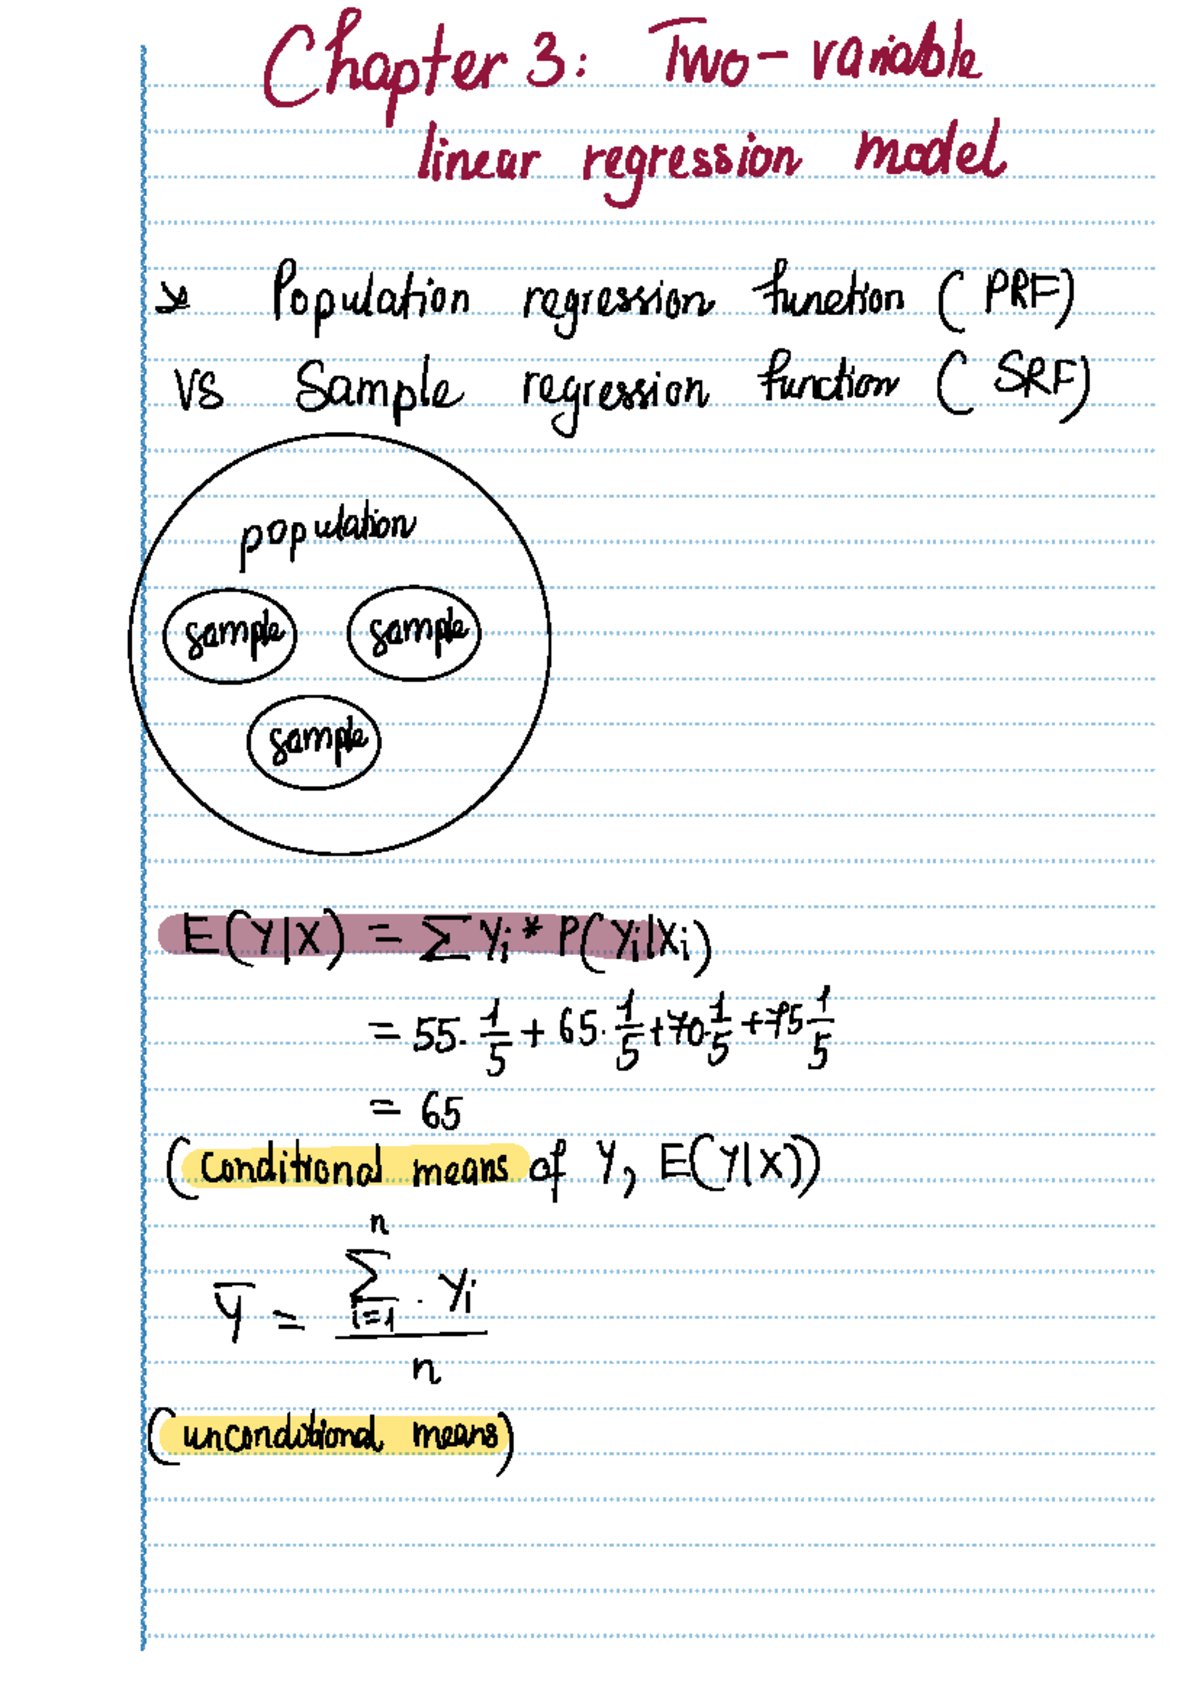 Chapter 3: Two-variable
linear regression model
Population regression function (PRF)
VS Sample regression function (SRF)
population
sample sample
sample
E(Y|X) = Σ Yi * P(Yi|Xi)
= 55. 1/5 + 65. 1/5 + 70. 1/5 + 75 1/5
= 65
(conditional means of Y, E(Y|X))
Ȳ = Σ_{i=1}^{n} . Yi / n
(unconditional means)